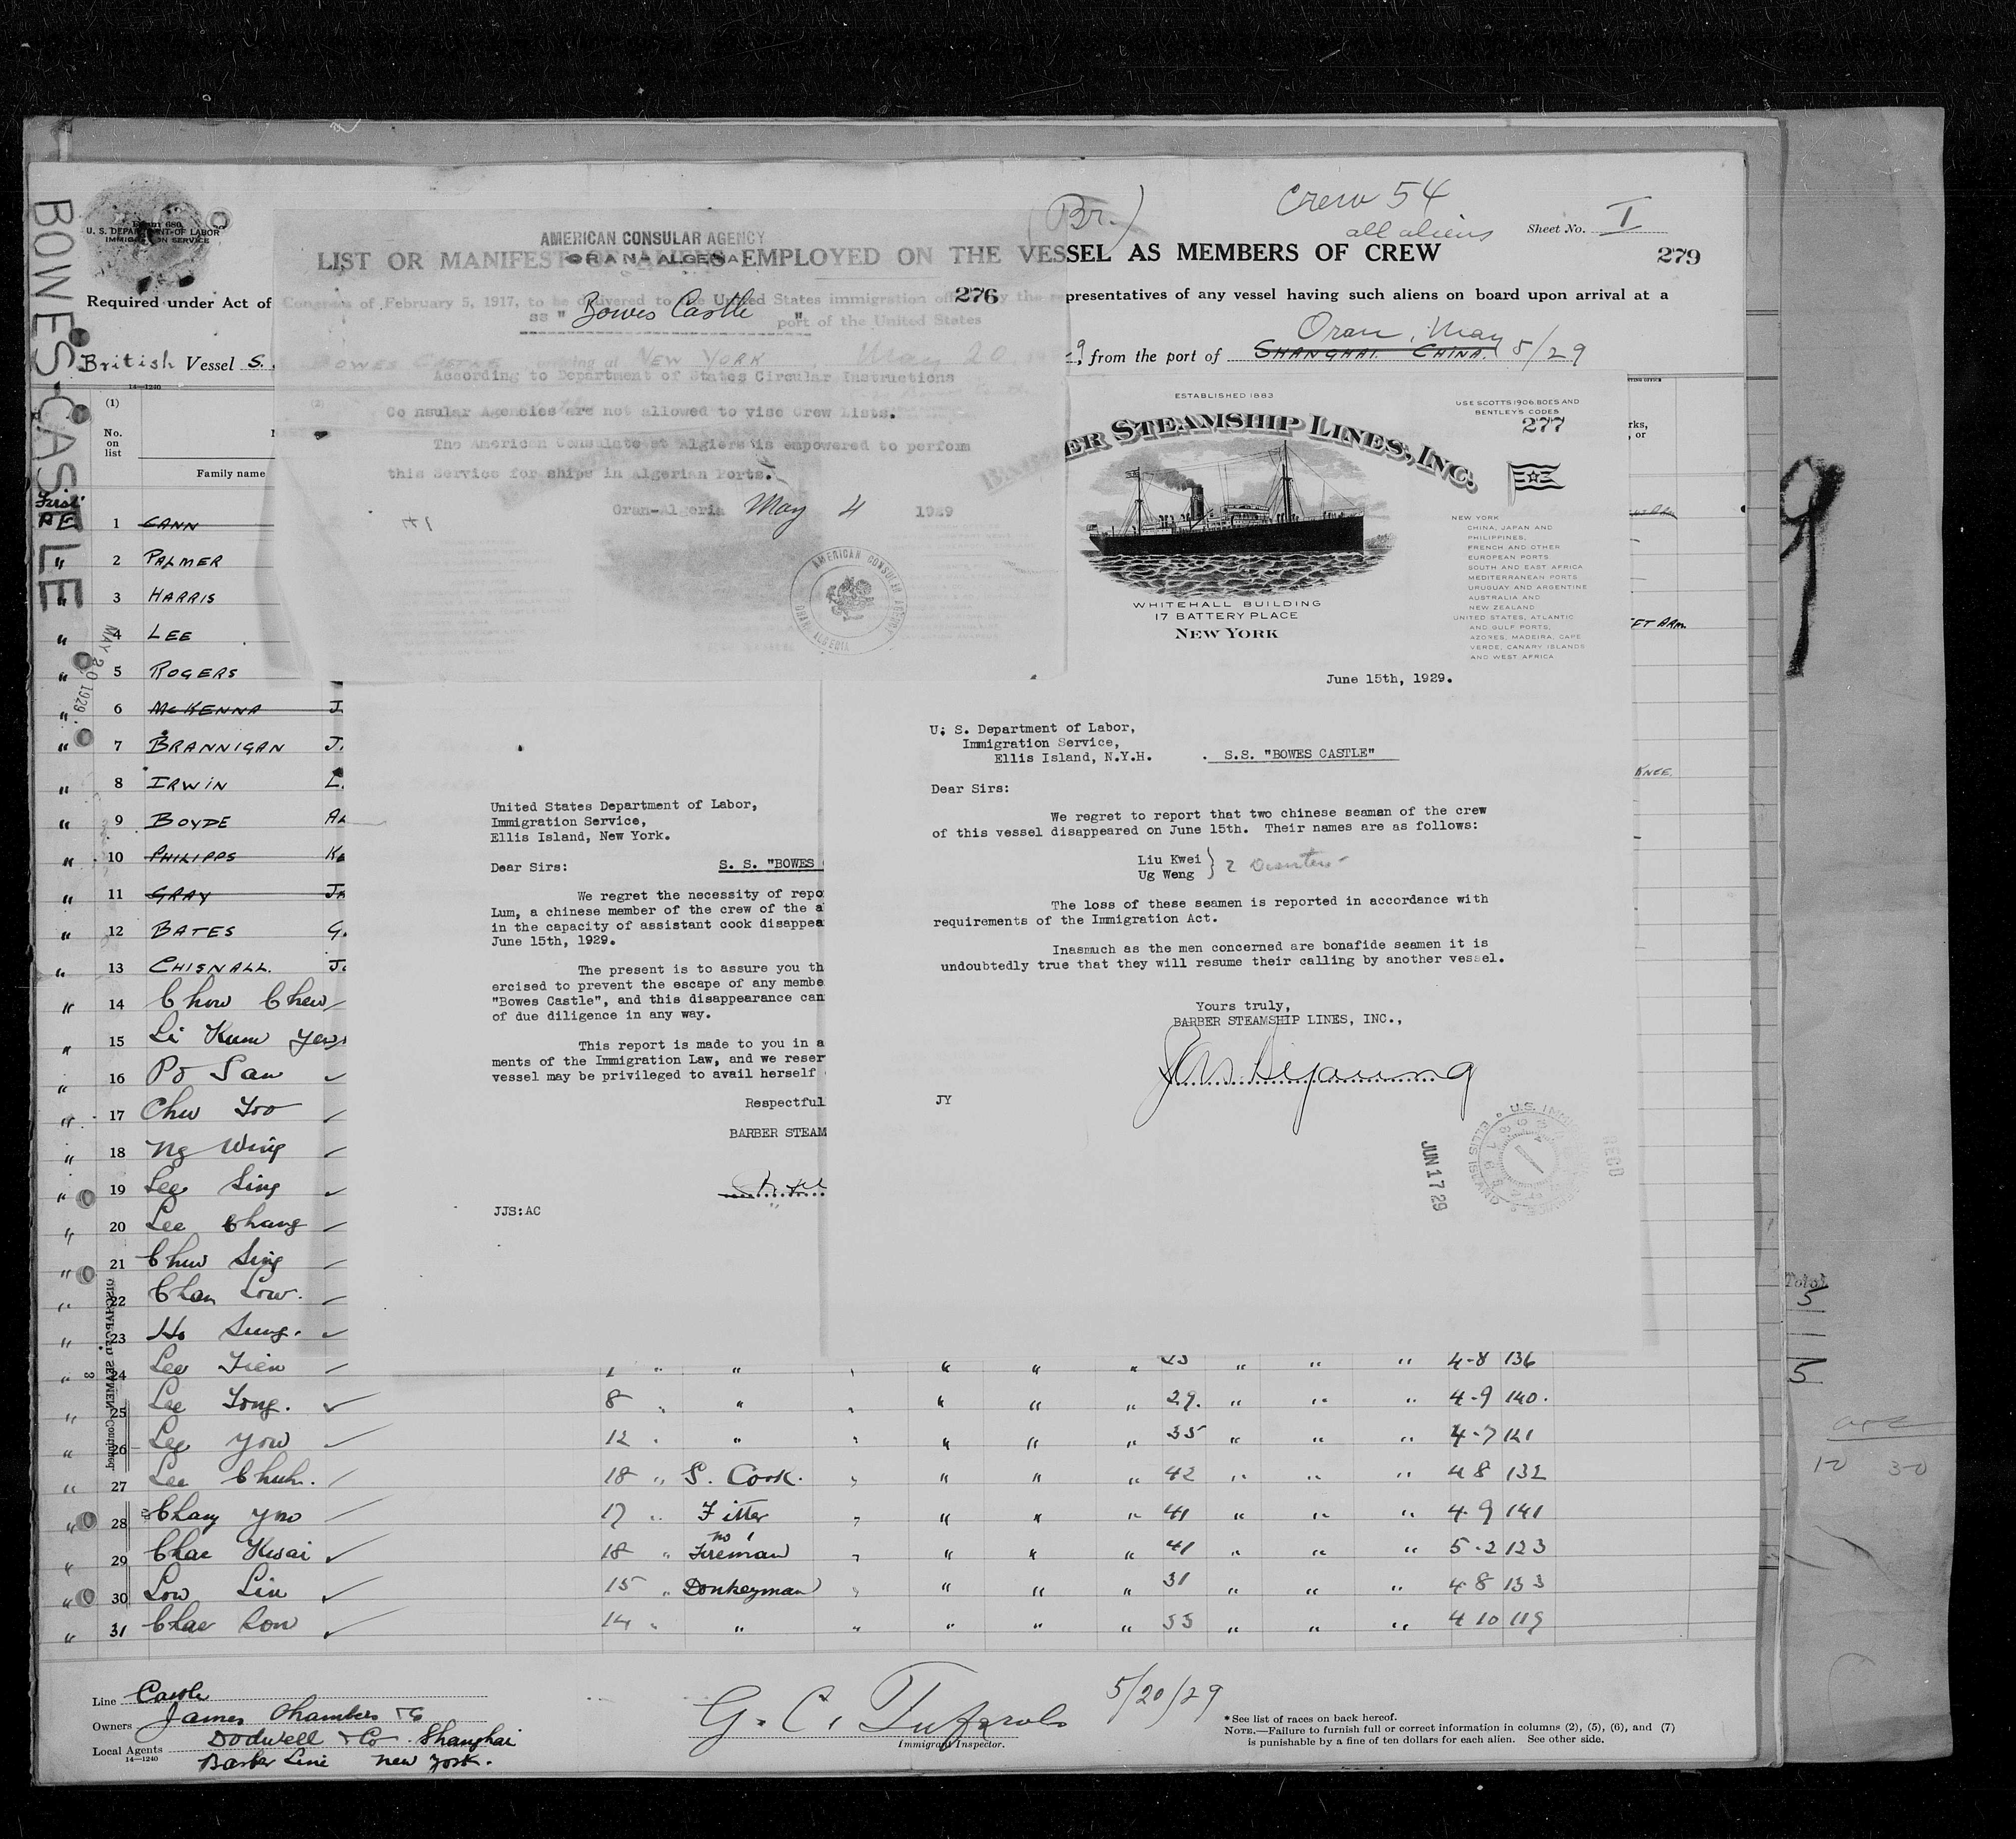 BOWES CASTLE
U. S. DEPARTMENT OF LABOR
IMMIGRATION SERVICE
(Br.)
Crew 54
all aliens
Sheet No. I
279
LIST OR MANIFEST EMPLOYED ON THE VESSEL AS MEMBERS OF CREW
Required under Act of Congress of February 5, 1917, to be delivered to the United States immigration by the representatives of any vessel having such aliens on board upon arrival at a
port of the United States
British Vessel S. BOWES CASTLE arriving at NEW YORK May 20, 1929, from the port of SHANGHAI CHINA. Oran, May 5/29
14—1240
(1)
No.
on
list
Family name
AMERICAN CONSULAR AGENCY
ORAN-ALGERIA
276
ss " Bowes Castle "
According to Department of States Circular Instructions
Co nsular Agencies are not allowed to vise Crew Lists.
The American Consulate at Algiers is empowered to perform
this Service for ships in Algerian Ports.
Oran-Algeria May 4 1929
AMERICAN CONSULAR AGENCY
ORAN ALGERIA
ESTABLISHED 1883
USE SCOTTS 1906, BOES AND
BENTLEY'S CODES
277
ER STEAMSHIP LINES, INC.
WHITEHALL BUILDING
17 BATTERY PLACE
NEW YORK
NEW YORK
CHINA, JAPAN AND
PHILIPPINES,
FRENCH AND OTHER
EUROPEAN PORTS
SOUTH AND EAST AFRICA
MEDITERRANEAN PORTS
URUGUAY AND ARGENTINE
AUSTRALIA AND
NEW ZEALAND
UNITED STATES, ATLANTIC
AND GULF PORTS,
AZORES, MADEIRA, CAPE
VERDE, CANARY ISLANDS
AND WEST AFRICA
June 15th, 1929.
U. S. Department of Labor,
Immigration Service,
Ellis Island, N.Y.H.
S.S. "BOWES CASTLE"
Dear Sirs:
We regret to report that two chinese seaman of the crew
of this vessel disappeared on June 15th. Their names are as follows:
Liu Kwei
Ug Weng
2 Deserters
The loss of these seamen is reported in accordance with
requirements of the Immigration Act.
Inasmuch as the men concerned are bonafide seamen it is
undoubtedly true that they will resume their calling by another vessel.
Yours truly,
BARBER STEAMSHIP LINES, INC.,
JY
JUN 17 29
RECD
United States Department of Labor,
Immigration Service,
Ellis Island, New York.
Dear Sirs:
S. S. "BOWES
We regret the necessity of repo
Lum, a chinese member of the crew of the a
in the capacity of assistant cook disappea
June 15th, 1929.
The present is to assure you th
ercised to prevent the escape of any membe
"Bowes Castle", and this disappearance can
of due diligence in any way.
This report is made to you in a
ments of the Immigration Law, and we reser
vessel may be privileged to avail herself
Respectful
BARBER STEAM
JJS:AC
First
MAY 20 1929
1 CANN
" 2 PALMER
" 3 HARRIS
" 4 LEE
" 5 ROGERS
" 6 McKENNA J.
" 7 BRANNIGAN J.
" 8 IRWIN L.
" 9 BOYDE AL
" 10 PHILIPPS
" 11 GRAY JA
" 12 BATES G.
" 13 CHISNALL. Jo
" 14 Chow Chew
" 15 Li Kum
" 16 Po San
" 17 Chu Yoo
" 18 Ng Wing
" 19 Lee Sing
" 20 Lee Chang
" 21 Chew Sing
" 22 Chan Low.
" 23 Ho Sung.
" 24 Lee Tien " " " " " " " " " 4-8 136
" 25 Lee Tong. 8 " " " " " " 29. " " " 4-9 140.
" 26 Lee You 12 " " " " " " 35 " " " 4-7 121
" 27 Lee Chuh. 18 " S. Cook. " " " " 42 " " " 4 8 132
" 28 Chang Yoo 17 " Fitter " " " " 41 " " " 4-9 141
" 29 Chae Kwai 18 " No 1 Fireman " " " " 41 " " " 5-2 123
" 30 Low Liu 15 " Donkeyman " " " " 31 " " " 4 8 133
" 31 Chae Son 14 " " " " " " 33 " " " 4 10 119
KNEE.
Total
5
5
10 30
Line Castle
Owners James Chambers & Co
Local Agents Dodwell & Co. Shanghai
14—1240
Barber Line New York.
5/20/29
Immigrant Inspector.
* See list of races on back hereof.
NOTE.—Failure to furnish full or correct information in columns (2), (5), (6), and (7)
is punishable by a fine of ten dollars for each alien. See other side.